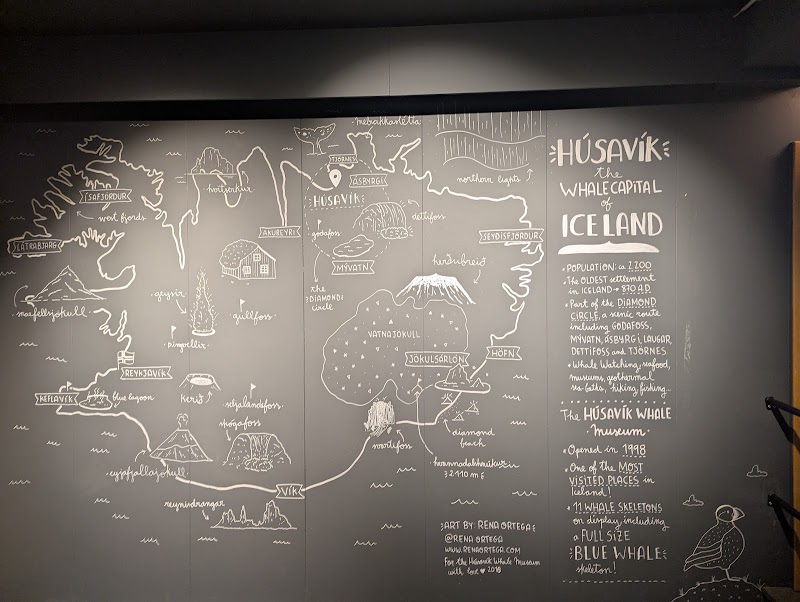 melrakkaslétta
TJÖRNES
ÁSBYRGI
HÚSAVÍK
dettifoss
godafoss
MÝVATN
the
DIAMOND
circle
northern lights
hvítserkur
ÍSAFJÖRÐUR
west fjords
LÁTRABJARG
AKUREYRI
SEYÐISFJÖRÐUR
herðubreið
geysir
gullfoss
þingvellir
snæfellsjökull
VATNAJÖKULL
JÖKULSÁRLÓN
HÖFN
REYKJAVÍK
KEFLAVÍK
blue lagoon
kerið
seljalandsfoss
skógafoss
eyjafjallajökull
svartifoss
diamond
beach
hvannadalshnúkur
2110 m
VÍK
reynisdrangar
ART BY: RENA ORTEGA
@RENA ORTEGA
WWW.RENAORTEGA.COM
For the Húsavík Whale Museum
with love ♥ 2018
HÚSAVÍK
the
WHALE CAPITAL
of
ICELAND
• POPULATION: ca 2200
• The OLDEST settlement
in ICELAND → 870 A.D.
• Part of the DIAMOND
CIRCLE, a scenic route
including GODAFOSS,
MÝVATN, ÁSBYRGI, LAUGAR,
DETTIFOSS and TJÖRNES
• Whale Watching, seafood,
museums, geothermal
sea baths, hiking, fishing...
The HÚSAVÍK WHALE
Museum
• Opened in 1998
• One of the MOST
VISITED PLACES in
Iceland!
• 11 WHALE SKELETONS
on display, including
a FULL SIZE
BLUE WHALE
skeleton!